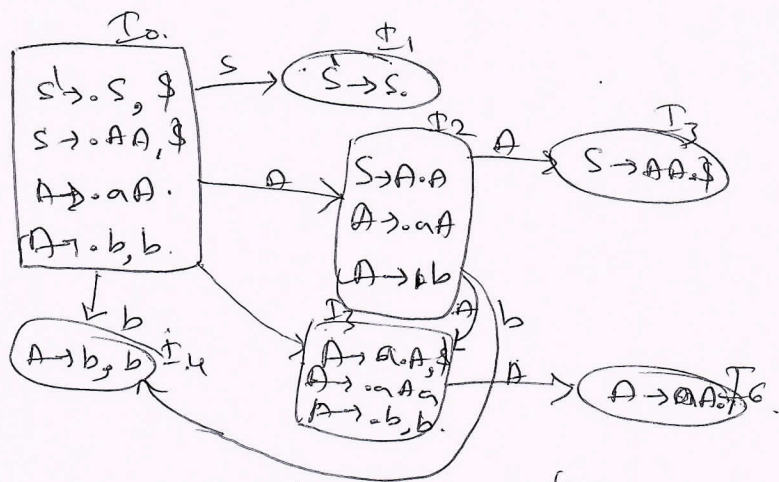 I0.
S' → .S, $
S → .AA, $
A → .aA.
A → .b, b.
S
I1
S' → S.
A
I2
S → A.A
A → .aA
A → .b
A
I3
S → AA.$
b
A → b, b
I4
I3
A → a.A, $
A → .aAa
A → .b, b.
A
b
A
I6